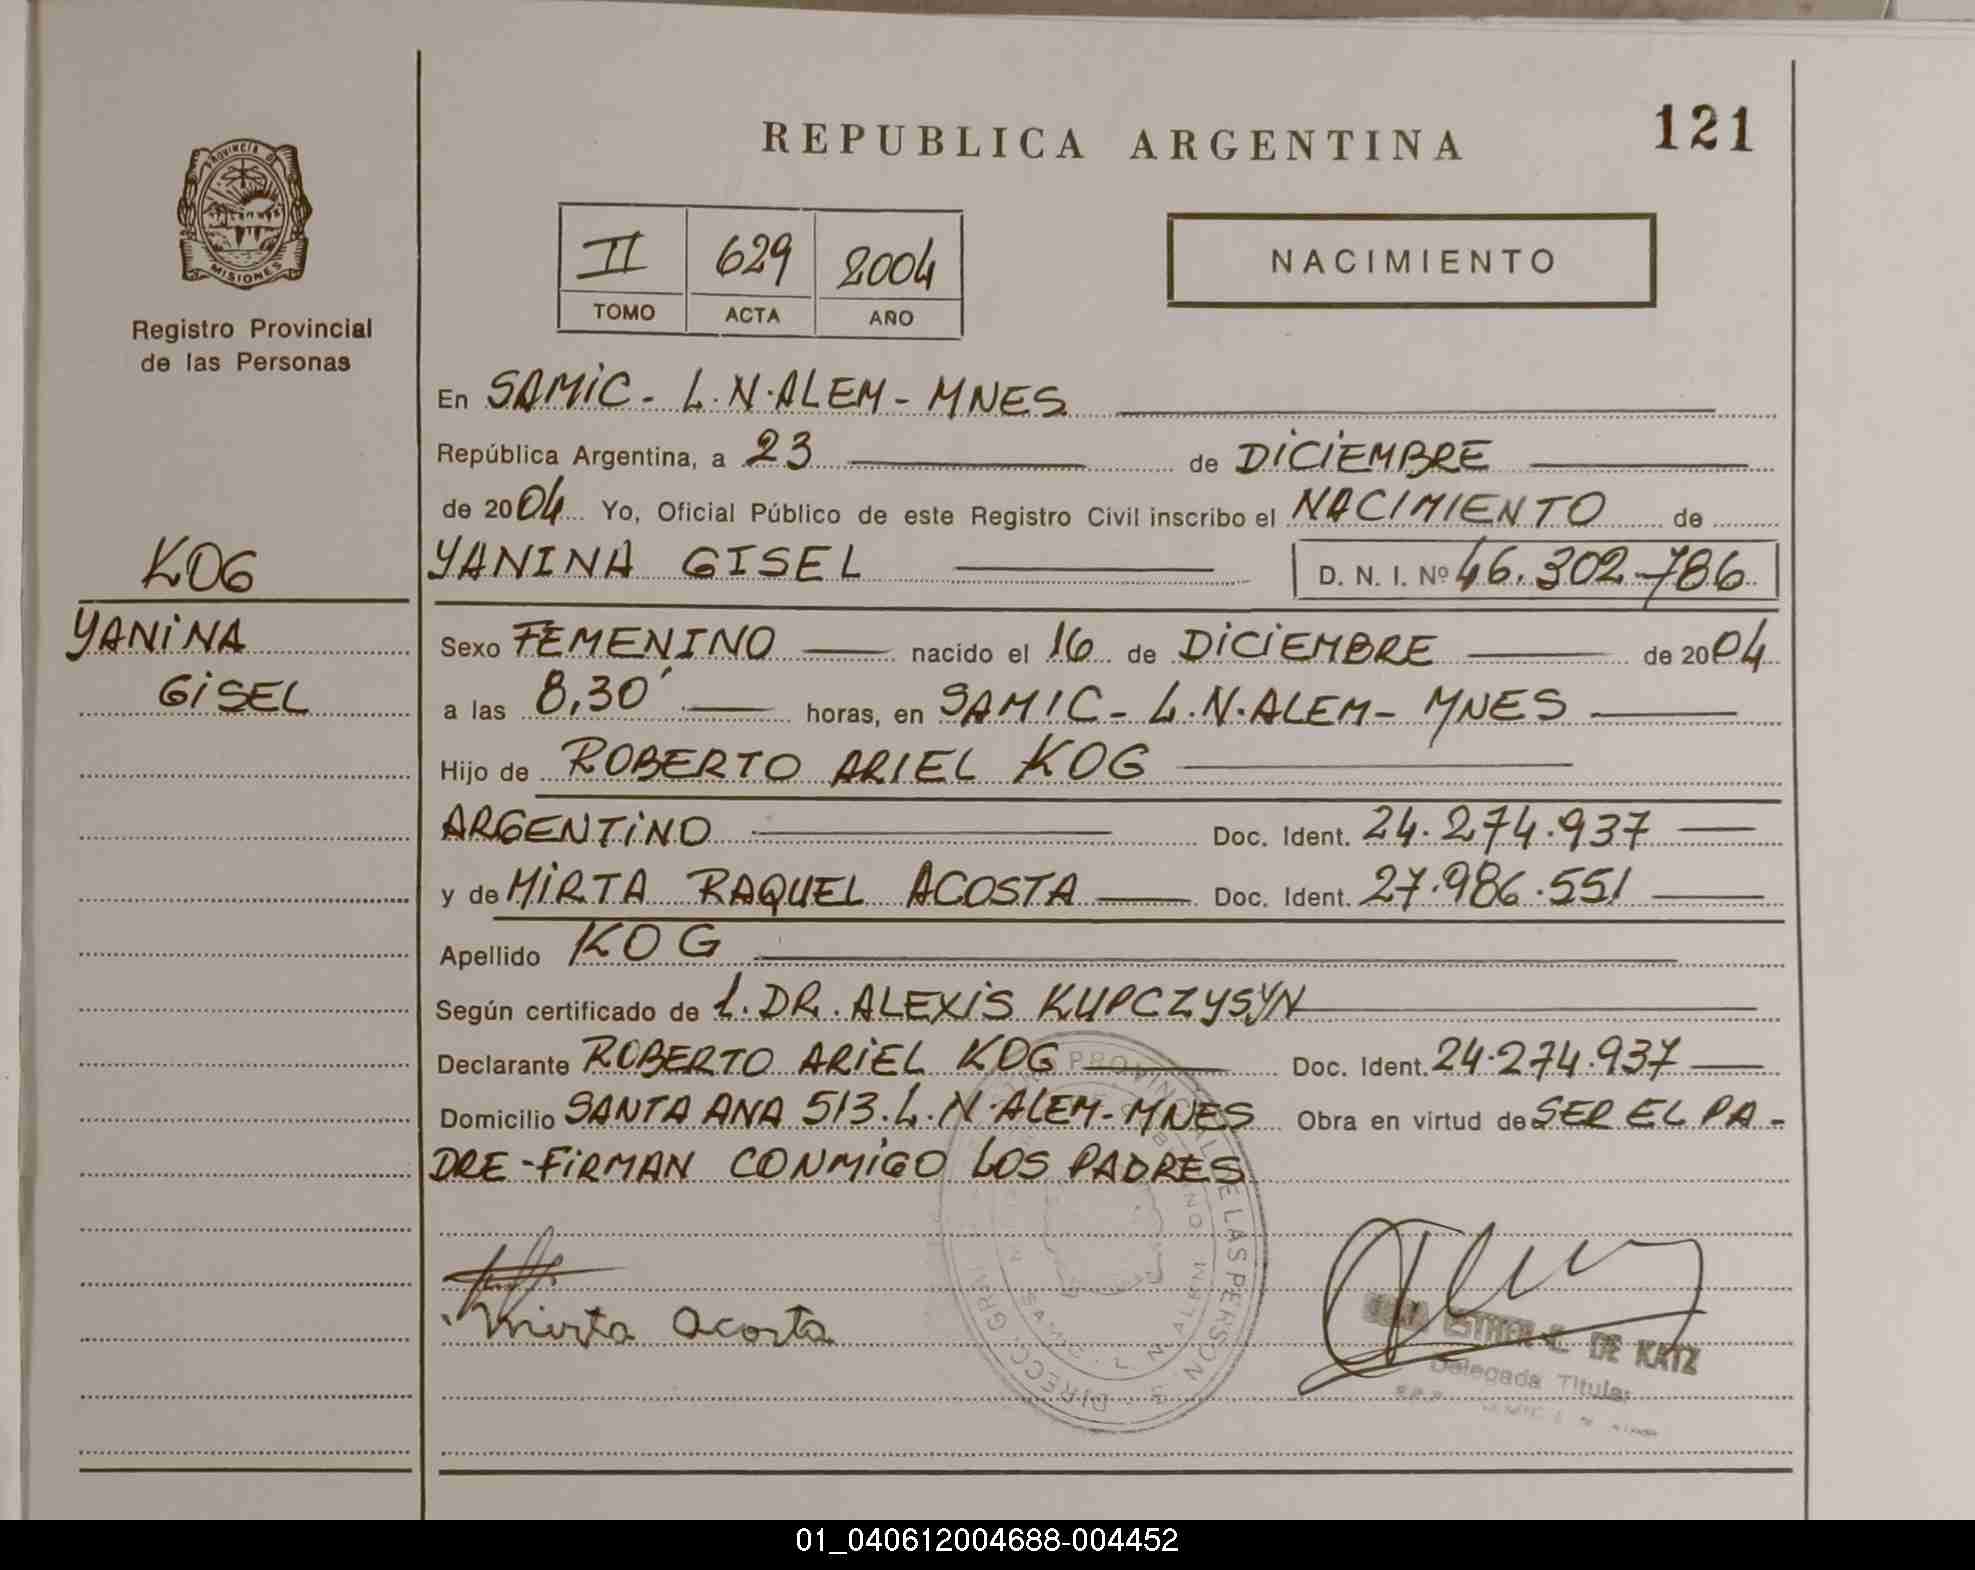 REPUBLICA ARGENTINA
121
PROVINCIA DE
MISIONES
Registro Provincial
de las Personas
II 629 2004
TOMO ACTA AÑO
NACIMIENTO
KOG
YANINA
GISEL
En SAMIC - L.N.ALEM - MNES
República Argentina, a 23 de DICIEMBRE
de 2004 Yo, Oficial Público de este Registro Civil inscribo el NACIMIENTO de
YANINA GISEL D. N. I. Nº 46.302.786
Sexo FEMENINO nacido el 16 de DICIEMBRE de 2004
a las 8,30' horas, en SAMIC - L.N.ALEM - MNES
Hijo de ROBERTO ARIEL KOG
ARGENTINO Doc. Ident. 24.274.937
y de MIRTA RAQUEL ACOSTA Doc. Ident. 27.986.551
Apellido KOG
Según certificado de 1. DR. ALEXIS KUPCZYSYN
Declarante ROBERTO ARIEL KOG Doc. Ident. 24.274.937
Domicilio SANTA ANA 513. L.N.ALEM - MNES Obra en virtud de SER EL PA-
DRE - FIRMAN CONMIGO LOS PADRES
Mirta Acosta
ESTHER DE KATZ
Delegada Titular
01_040612004688-004452